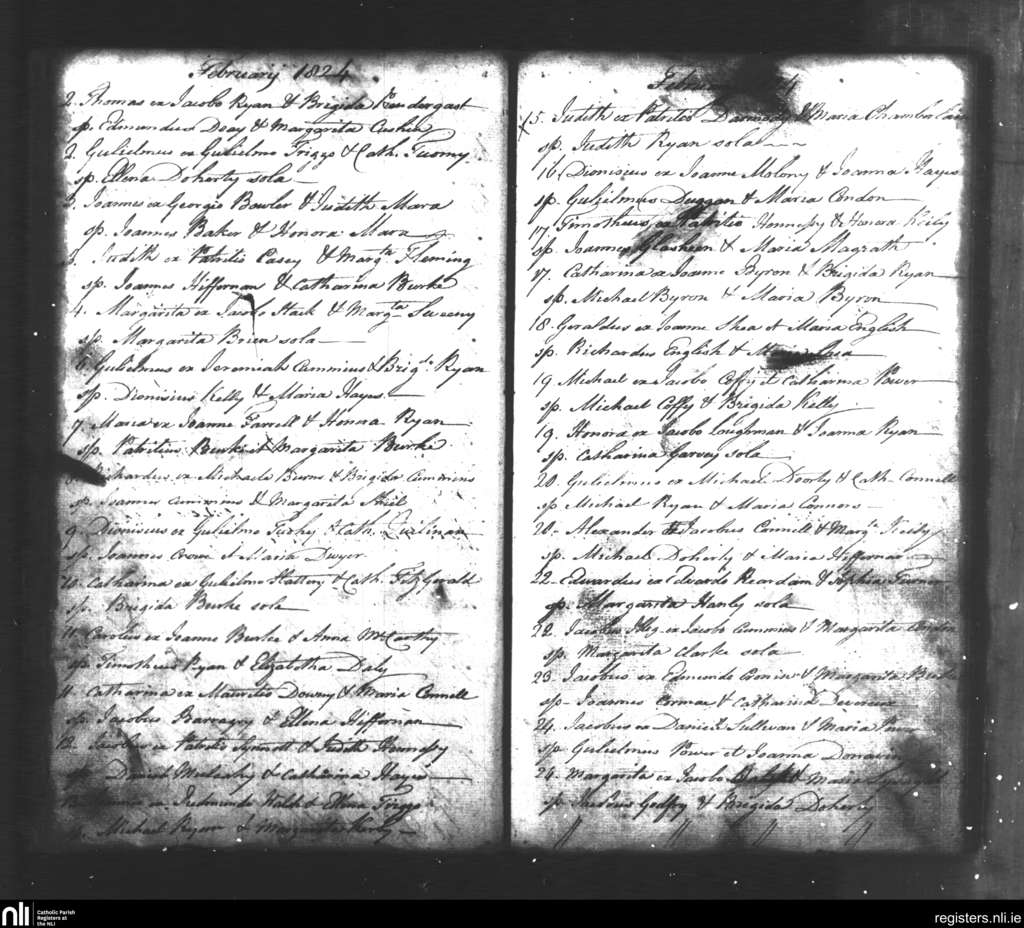 February 1824
2. Thomas ex Jacobo Ryan & Brigida Prendergast
sp. Edmundus Deay & Margarita Cushin
2. Gulielmus ex Gulielmo Griggs & Cath. Tuomy
sp. Ellena Doherty sola
3. Joannes ex Georgio Bowler & Judith Mara
sp. Joannes Baker & Honora Mara
3. Judith ex Patritio Casey & Margta Fleming
sp. Joannes Hiffernan & Catharina Burke
4. Margarita ex Jacobo Stack & Margta Sweeny
sp. Margarita Brien sola
6. Gulielmus ex Jeremiah Cummins & Brigda Ryan
sp. Dionisius Kelly & Maria Hayes
7. Maria ex Joanne Farrell & Honora Ryan
sp. Patritius Burke et Margarita Burke
ex Michaele Burns & Brigida Cummins
sp. Joannes Cummins & Margarita
9. Dionisius ex Gulielmo & Cath. Quilinan
sp. Joannes Crowe et Maria Dwyer
10. Catharina ex Gulielmo Slattery & Cath. FitzGerald
sp. Brigida Burke sola
11. Carolus ex Joanne Burke & Anna McCarthy
sp. Timotheus Ryan & Elizabetha Daly
11. Catharina ex Mauritio Downy & Maria Connell
sp. Jacobus & Ellena Hiffernan
12. Jacobus ex Patritio Synnott & Judith Hennessy
sp. Daniel Mulcahy & Catharina Hayes
13. ex Redmundo Walsh & Ellena
sp. Michael Ryan & Margarita
15. Judith ex Patritio Darmody & Maria Chamberlain
sp. Judith Ryan sola
16 Dionisius ex Joanne Molony & Joanna Hayes
sp. Gulielmus Duggan & Maria Condon
17. Timotheus ex Patritio Hennessy & Honora Kiely
sp. Joannes Glasheen & Maria Magrath
17. Catharina ex Joanne Byron & Brigida Ryan
sp. Michael Byron & Maria Byron
18. Geraldus ex Joanne Shea et Maria English
sp. Richardus English & Shea
19. Michael ex Jacobo Coffy et Catharina Power
sp. Michael Coffy & Brigida Kelly
19. Honora ex Jacobo Loughman & Joanna Ryan
sp. Catharina Garvey sola
20. Gulielmus ex Michael Doorly & Cath. Connell
sp. Michael Ryan & Maria Connors
20. Alexander Jacobus Connell & Marga Kiely
sp. Michael Doherty & Maria Hiffernan
22. Edwardus ex Edwardo Reardan & Sophia Turner
sp. Margarita Hanly sola
22. Jacobus Illeg. ex Jacobo Cummins & Margarita
sp. Margarita Clarke sola
23. Jacobus ex Edmundo & Margarita
sp. Joannes Cormac & Catharina Devereux
24. Jacobus ex Daniel Sullivan & Maria
sp. Gulielmus Power et Joanna
24. Margarita ex Jacobo & Maria
sp. Godfry & Brigida Doherty
nli
Catholic Parish
Registers at
the NLI
registers.nli.ie